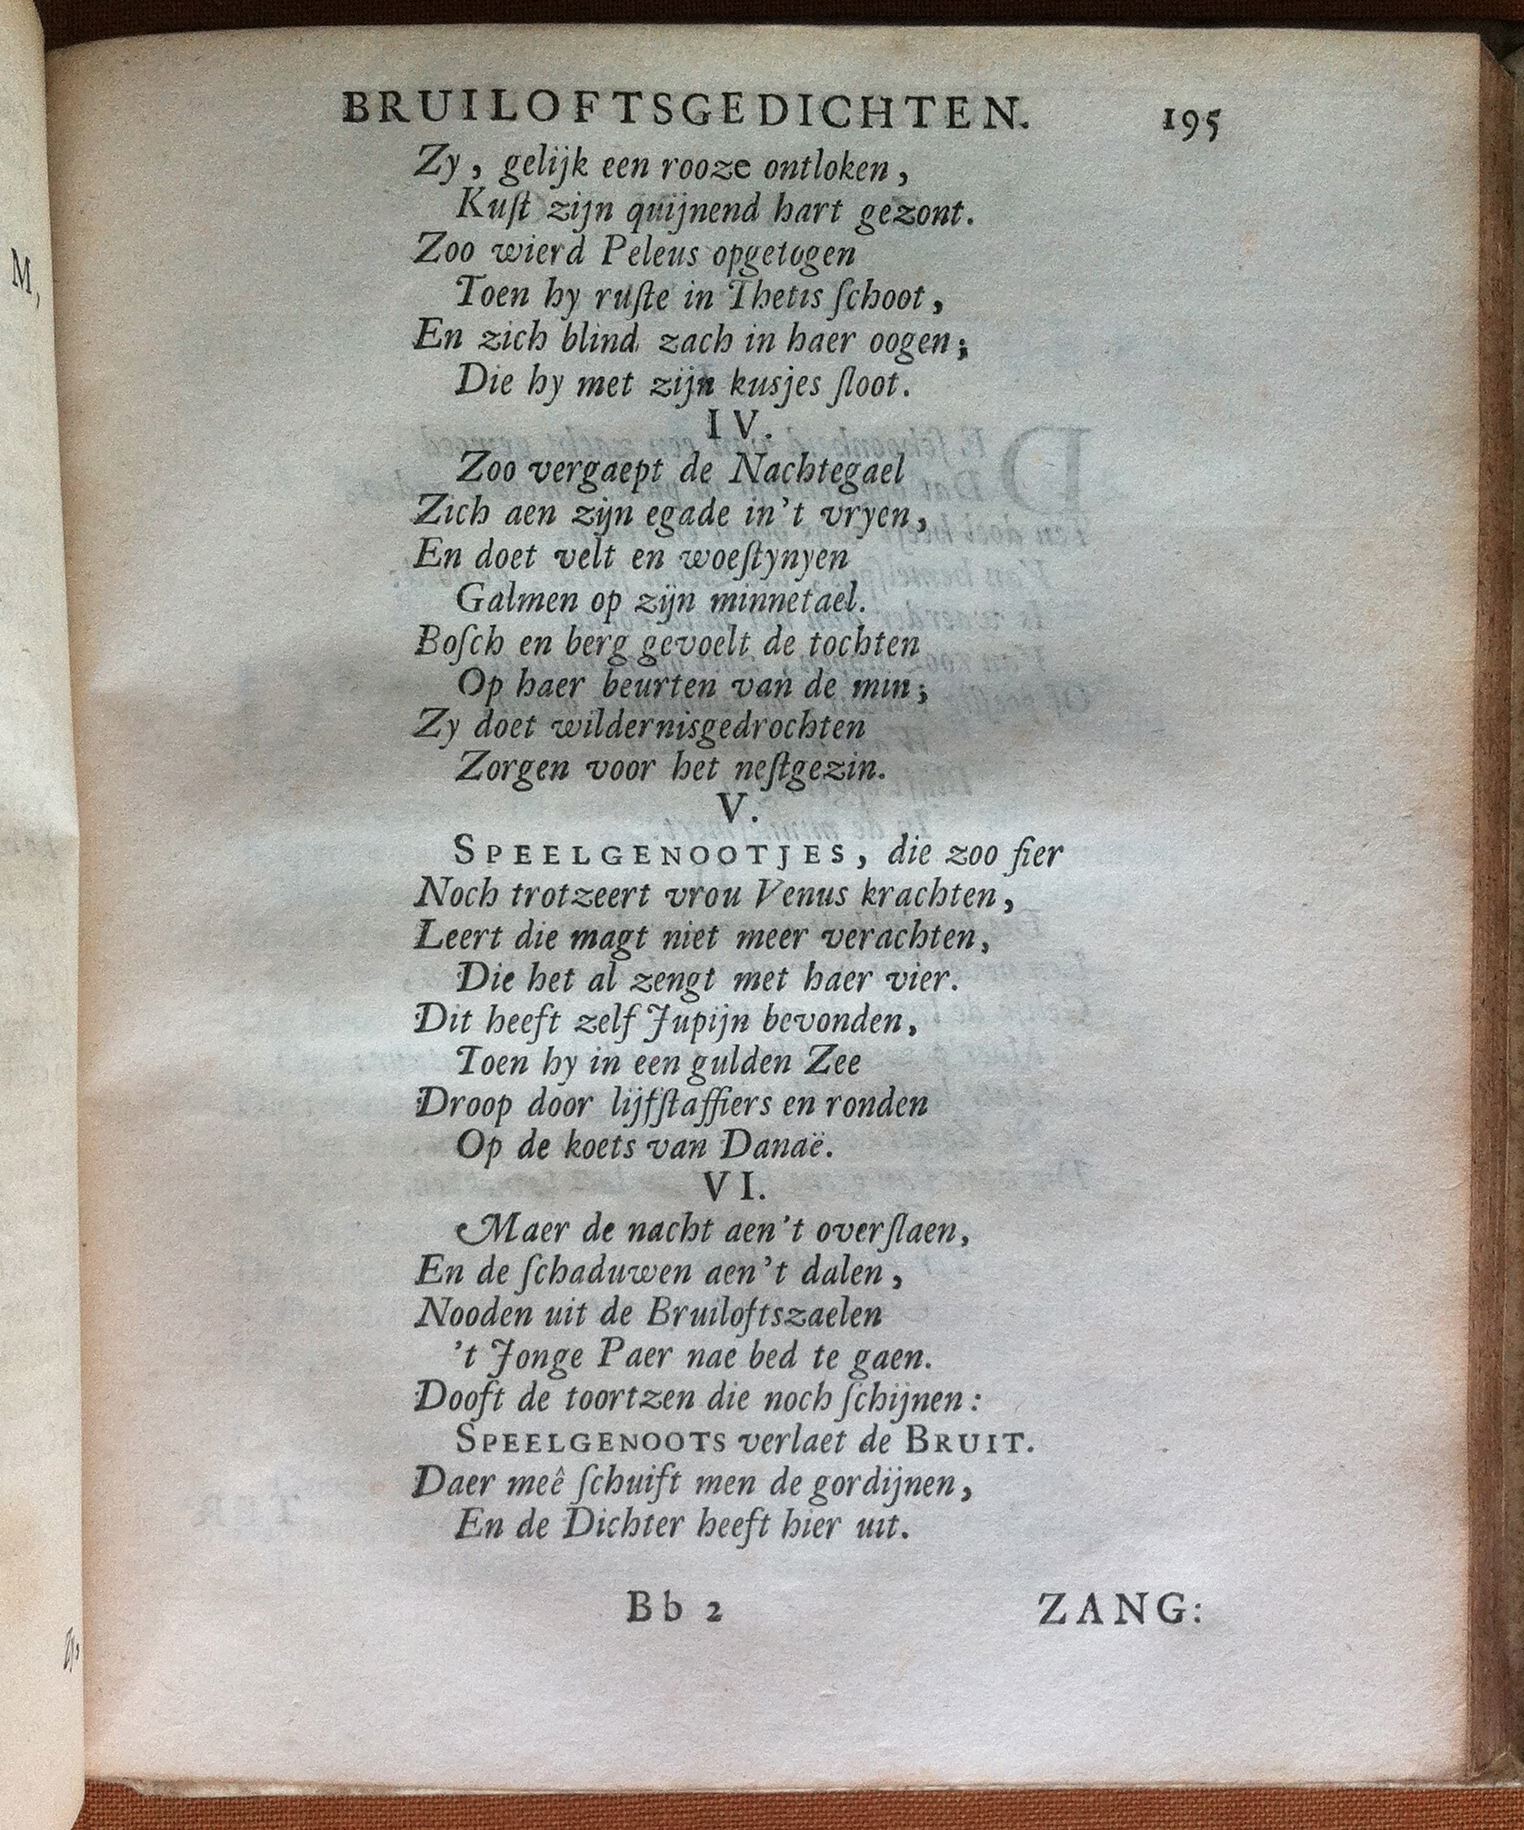 BRUILOFTSGEDICHTEN. 195
Zy, gelijk een rooze ontloken,
Kuſt zijn quijnend hart gezont.
Zoo wierd Peleus opgetogen
Toen hy ruſte in Thetis ſchoot,
En zich blind zach in haer oogen;
Die hy met zijn kusjes ſloot.
IV.
Zoo vergaept de Nachtegael
Zich aen zijn egade in't vryen,
En doet velt en woeſtynyen
Galmen op zijn minnetael.
Boſch en berg gevoelt de tochten
Op haer beurten van de min;
Zy doet wildernisgedrochten
Zorgen voor het neſtgezin.
V.
SPEELGENOOTJES, die zoo fier
Noch trotzeert vrou Venus krachten,
Leert die magt niet meer verachten,
Die het al zengt met haer vier.
Dit heeft zelf Jupijn bevonden,
Toen hy in een gulden Zee
Droop door lijfſtaffiers en ronden
Op de koets van Danaë.
VI.
Maer de nacht aen't overſlaen,
En de ſchaduwen aen't dalen,
Nooden uit de Bruiloftszaelen
't Jonge Paer nae bed te gaen.
Dooft de toortzen die noch ſchijnen:
SPEELGENOOTS verlaet de BRUIT.
Daer meê ſchuift men de gordijnen,
En de Dichter heeft hier uit.
Bb 2 ZANG: